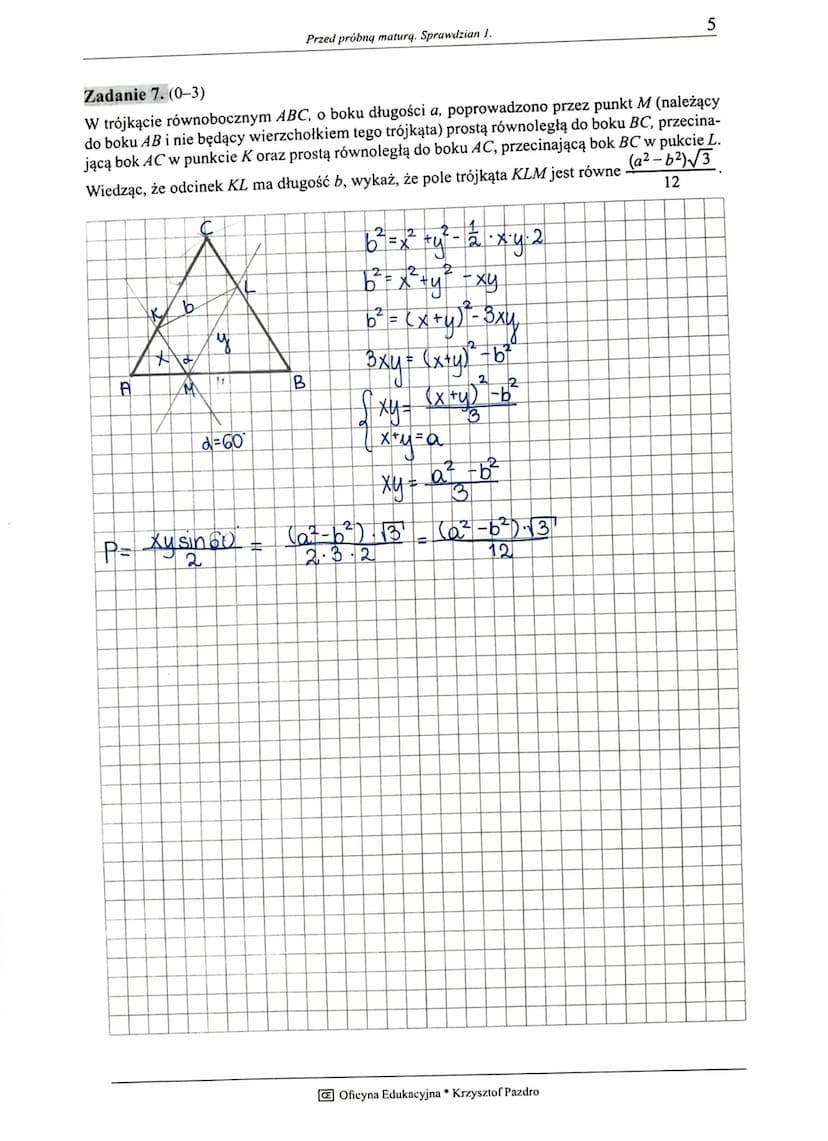 Przed próbną maturą. Sprawdzian 1.
5
Zadanie 7. (0–3)
W trójkącie równobocznym ABC, o boku długości a, poprowadzono przez punkt M (należący
do boku AB i nie będący wierzchołkiem tego trójkąta) prostą równoległą do boku BC, przecina-
jącą bok AC w punkcie K oraz prostą równoległą do boku AC, przecinającą bok BC w pukcie L.
Wiedząc, że odcinek KL ma długość b, wykaż, że pole trójkąta KLM jest równe (a² – b²)√3 / 12.
C
L
K
b
y
x
α
A
M
B
α=60°
b² = x² + y² - 1/2 · x·y·2
b² = x² + y² - xy
b² = (x+y)² - 3xy
3xy = (x+y)² - b²
{ xy = (x+y)² - b² / 3
x+y=a
xy = a² - b² / 3
P = xy sin60° / 2 = (a² - b²)·√3 / 2·3·2 = (a² - b²)·√3 / 12
Œ Oficyna Edukacyjna * Krzysztof Pazdro